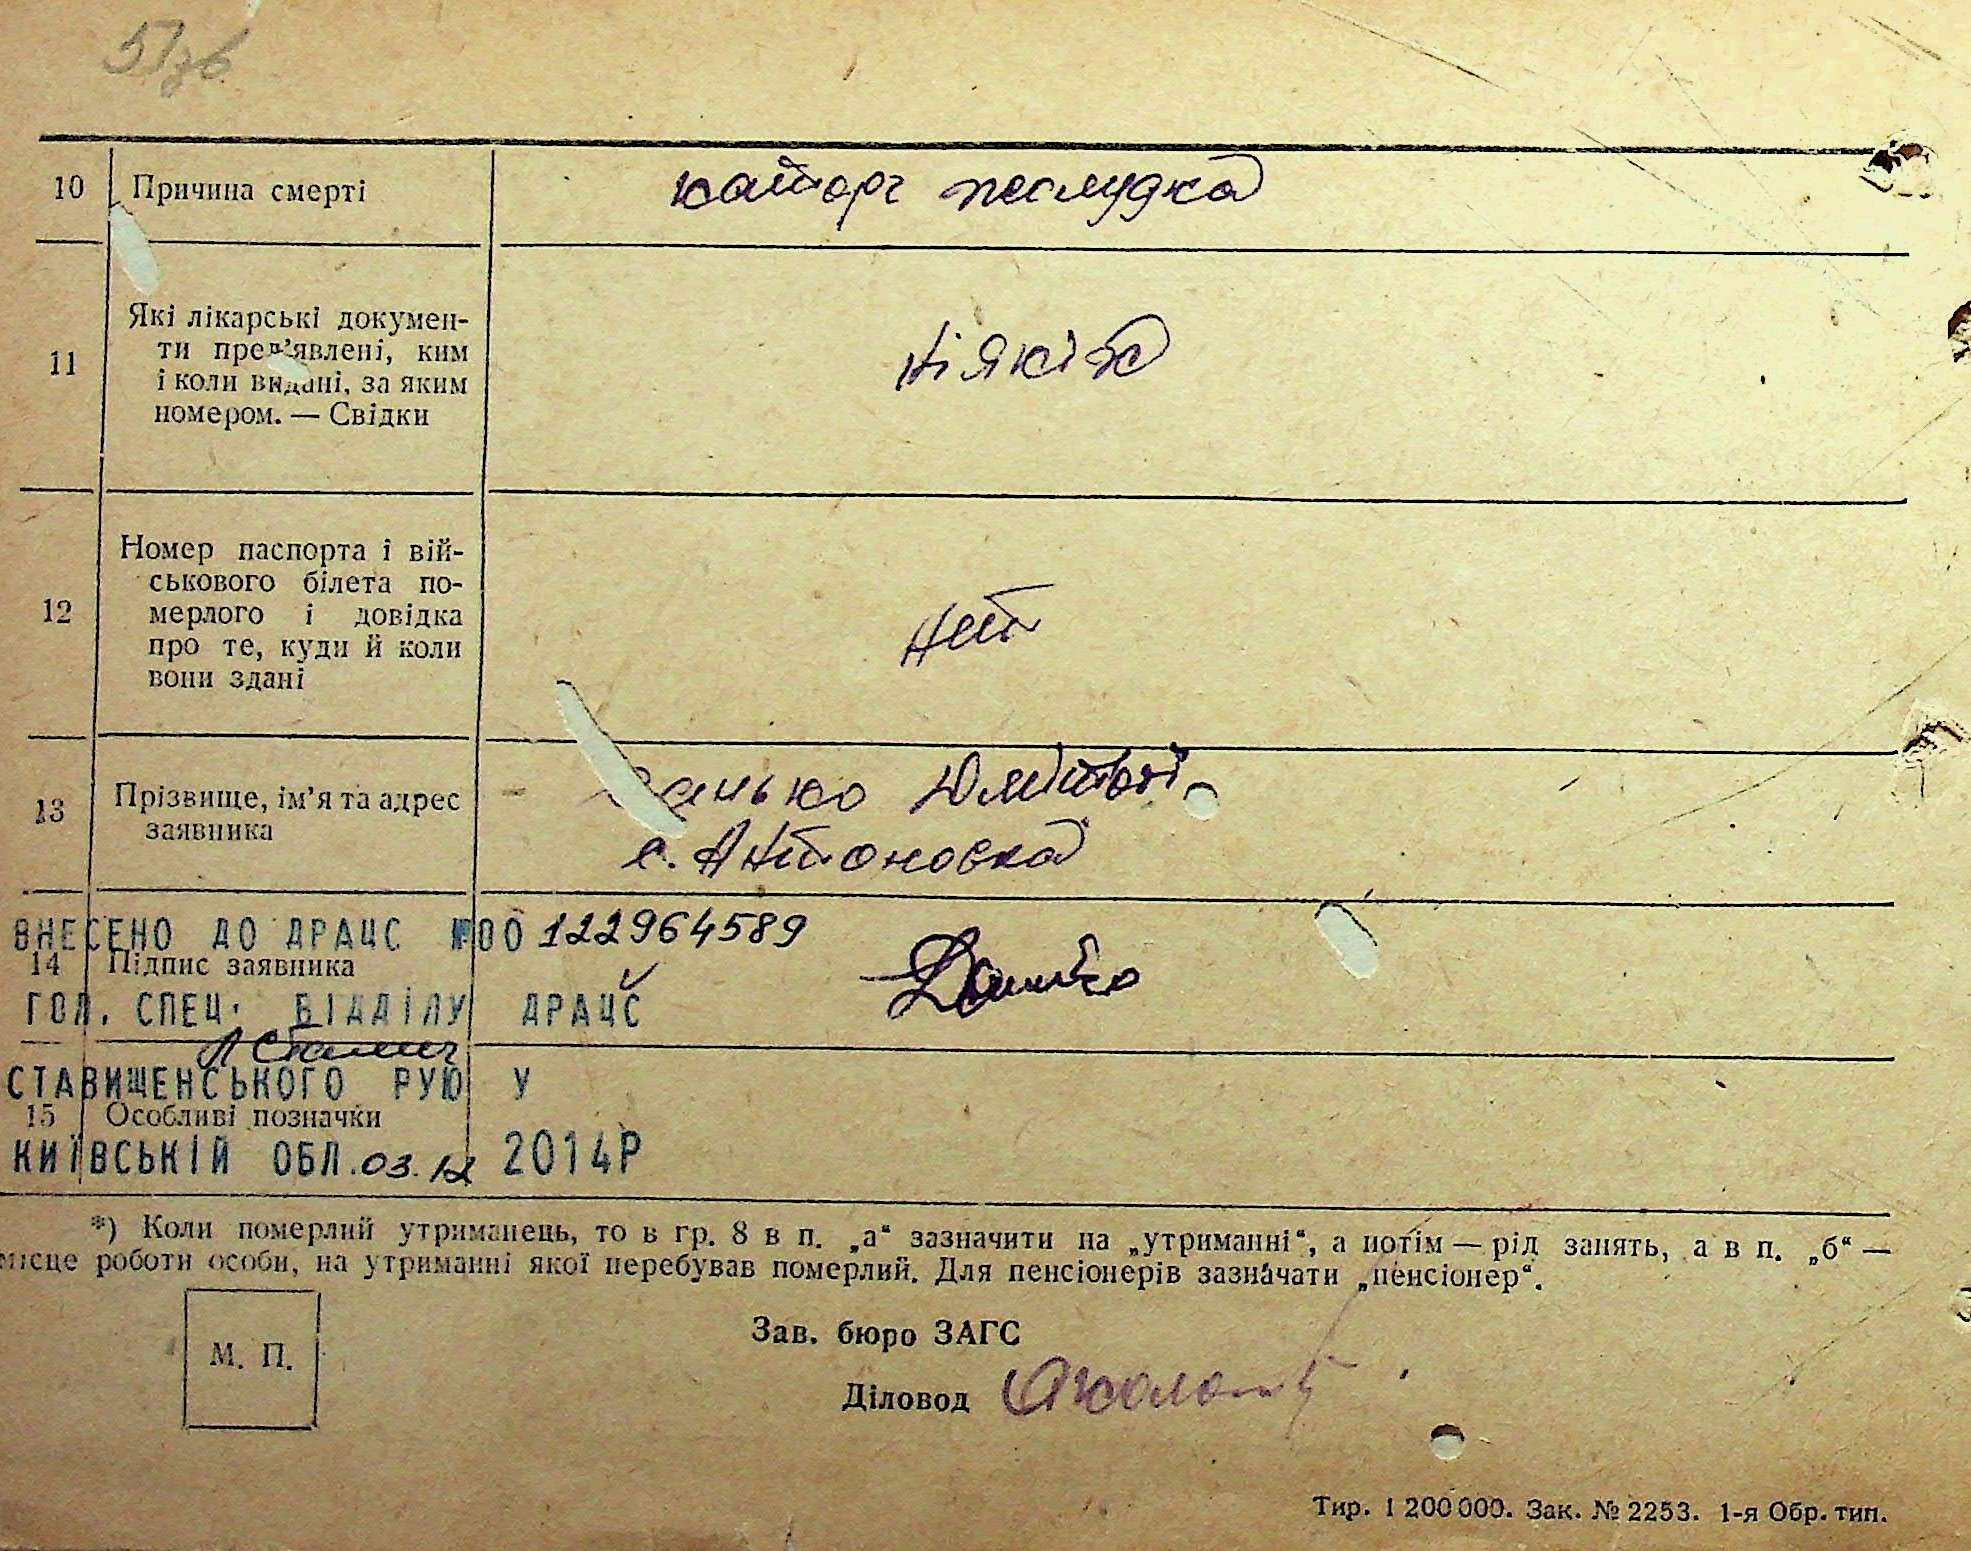 51зв
10 Причина смерті катарг жеслудка
11 Які лікарські докумен-
ти пред'явлені, ким
і коли видані, за яким
номером. — Свідки
ніяких
12 Номер паспорта і вій-
ськового білета по-
мерлого і довідка
про те, куди й коли
вони здані
нет
13 Прізвище, ім'я та адрес
заявника
с. Антоновка
ВНЕСЕНО ДО ДРАЦС №00 122964589
14 Підпис заявника
ГОЛ. СПЕЦ. ВІДДІЛУ ДРАЦС
СТАВИЩЕНСЬКОГО РУЮ У
15 Особливі позначки
КИЇВСЬКІЙ ОБЛ. 03.12 2014Р
*) Коли померлий утриманець, то в гр. 8 в п. „а“ зазначити на „утриманні“, а потім — рід занять, а в п. „б“ —
місце роботи особи, на утриманні якої перебував померлий. Для пенсіонерів зазначати „пенсіонер“.
М. П.
Зав. бюро ЗАГС
Діловод
Тир. 1 200 000. Зак. № 2253. 1-я Обр. тип.